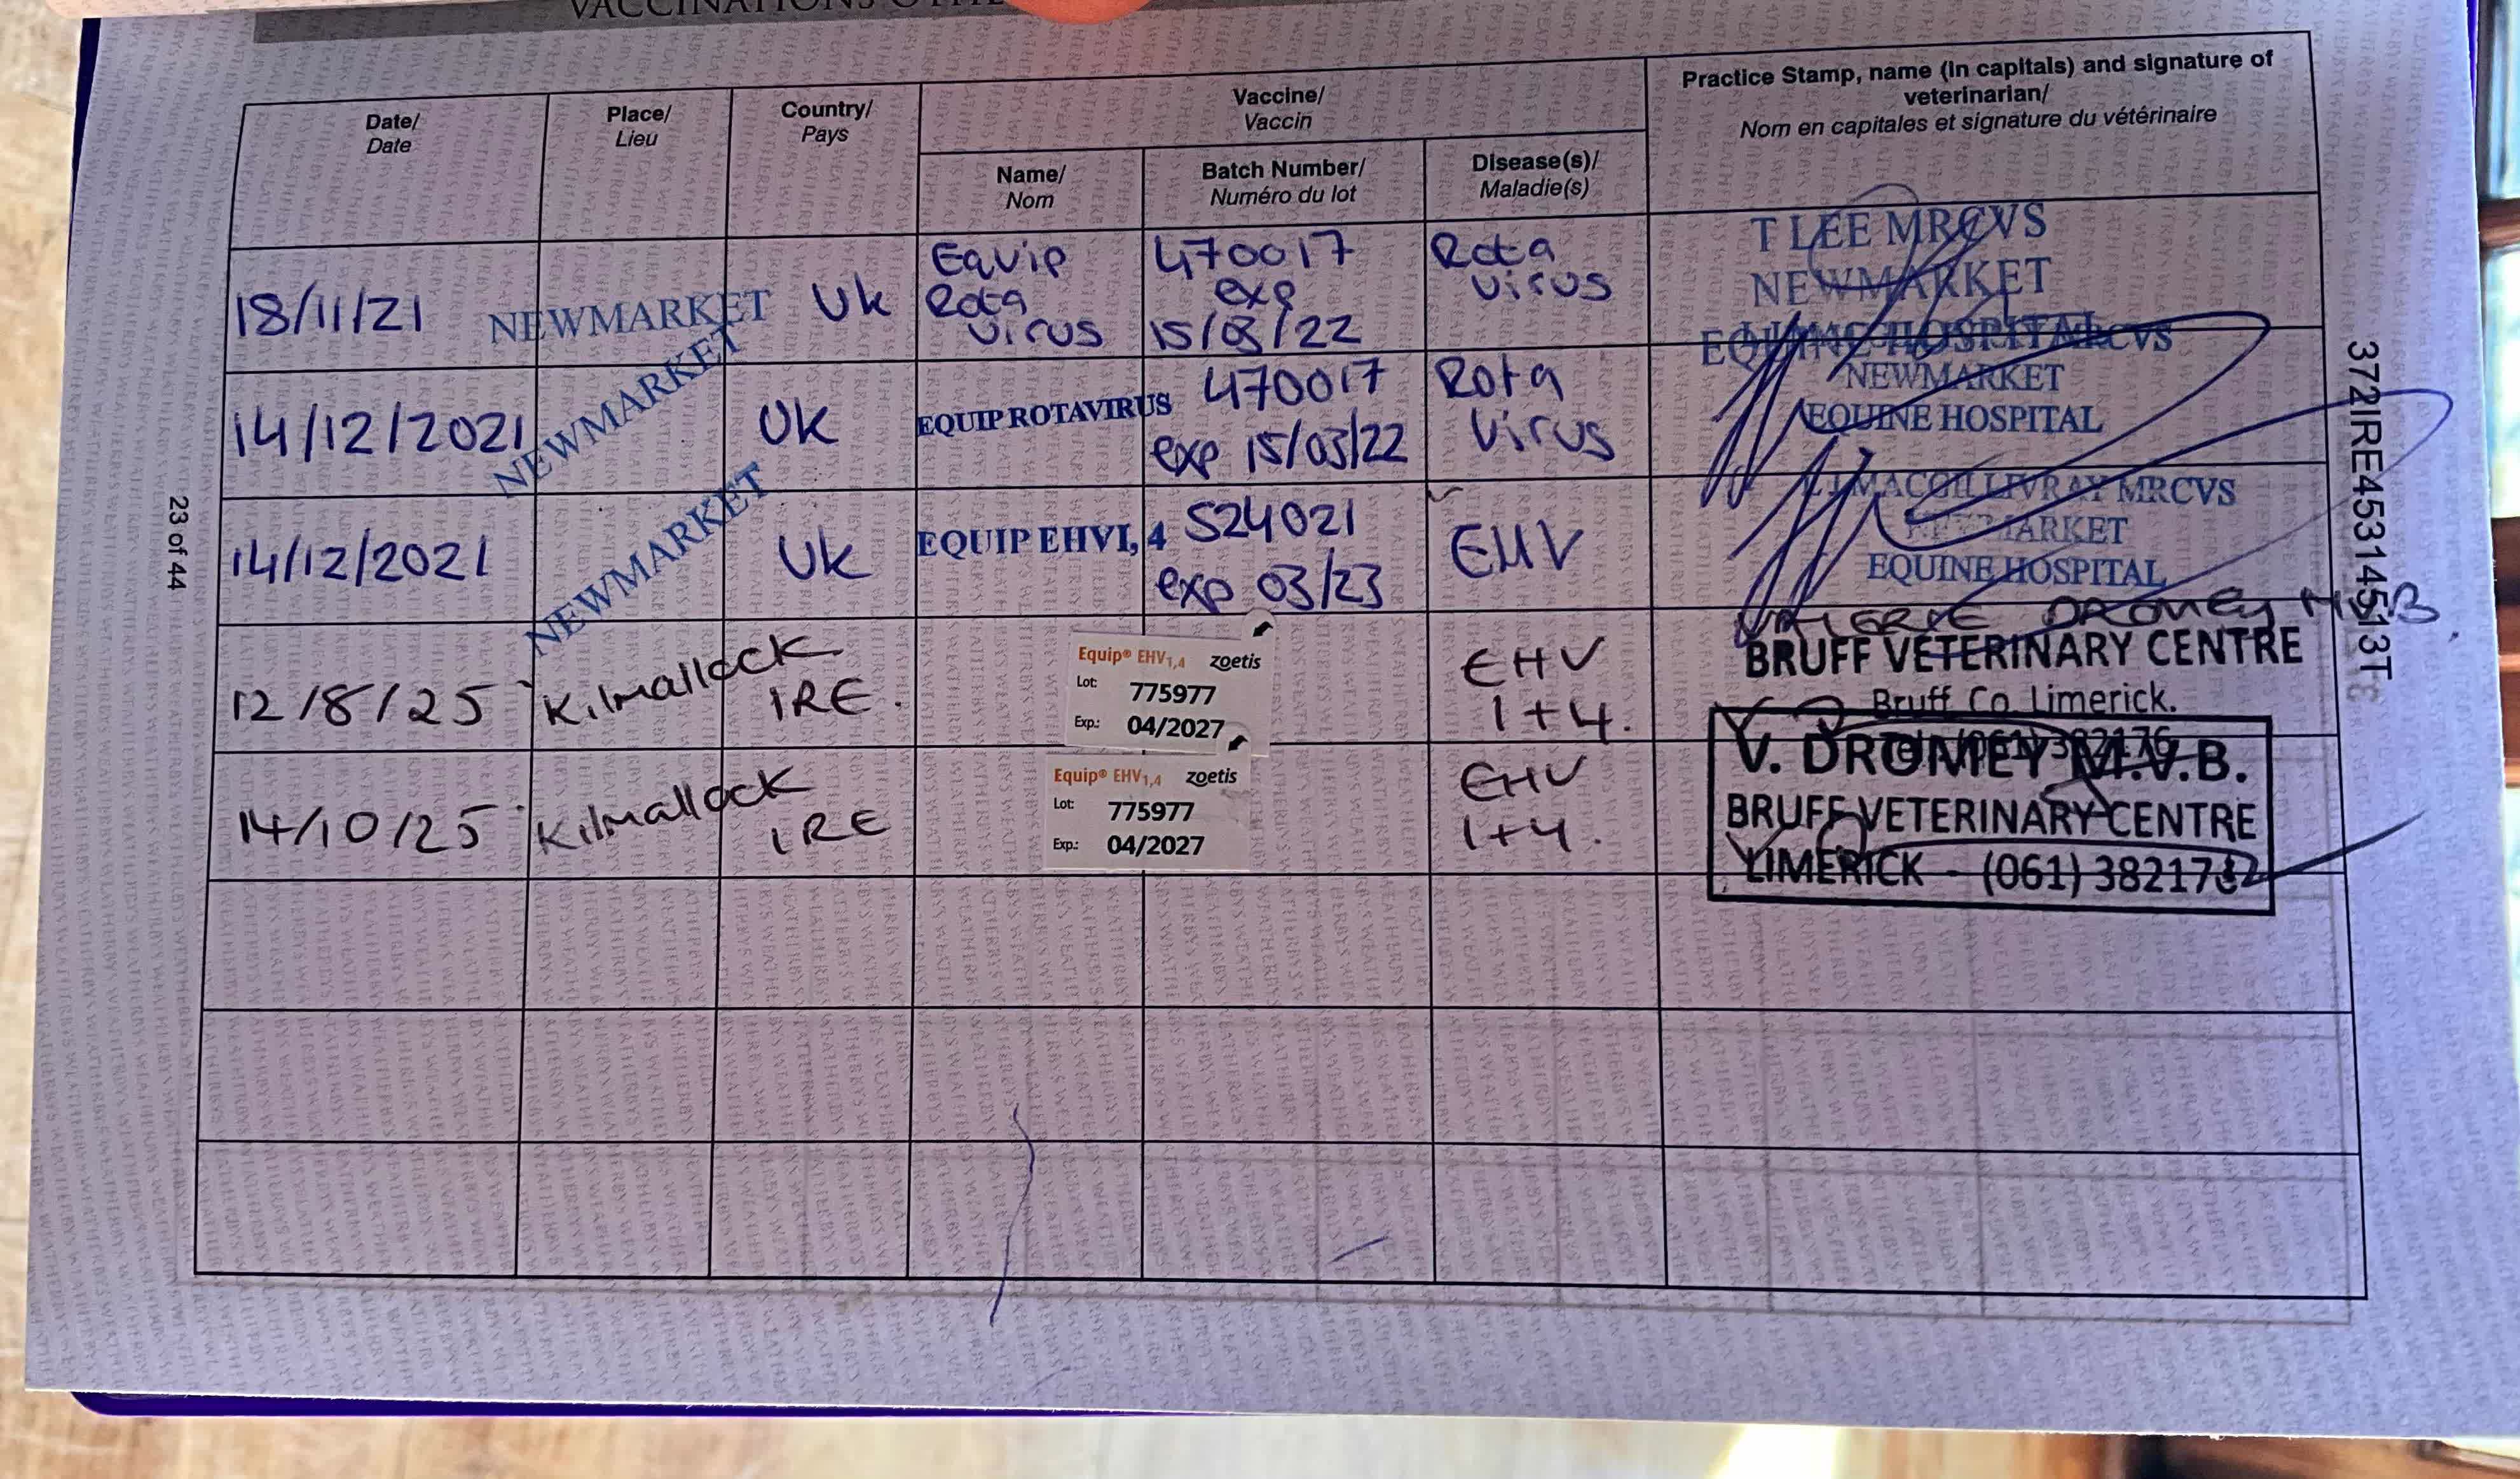 VACCINATIONS OTHE
Date/
Date
Place/
Lieu
Country/
Pays
Vaccine/
Vaccin
Name/
Nom
Batch Number/
Numéro du lot
Disease(s)/
Maladie(s)
Practice Stamp, name (in capitals) and signature of
veterinarian/
Nom en capitales et signature du vétérinaire
18/11/21
NEWMARKET
Uk
Equip
Rota
virus
470017
exp
15/03/22
Rota
virus
T LEE MRCVS
NEWMARKET
EQUINE HOSPITAL
14/12/2021
NEWMARKET
Uk
EQUIP ROTAVIRUS
470017
exp 15/03/22
Rota
virus
MRCVS
NEWMARKET
EQUINE HOSPITAL
14/12/2021
NEWMARKET
Uk
EQUIP EHV1, 4
524021
exp 03/23
EHV
MACGILLIVRAY MRCVS
NEWMARKET
EQUINE HOSPITAL
12/8/25
Kilmallock
IRE.
Equip® EHV1,4 zoetis
Lot: 775977
Exp.: 04/2027
EHV
1+4.
VALERIE DROMEY MVB.
BRUFF VETERINARY CENTRE
Bruff Co. Limerick.
14/10/25
Kilmallock
IRE
Equip® EHV1,4 zoetis
Lot: 775977
Exp.: 04/2027
EHV
1+4.
V. DROMEY M.V.B.
BRUFF VETERINARY CENTRE
LIMERICK - (061)
23 of 44